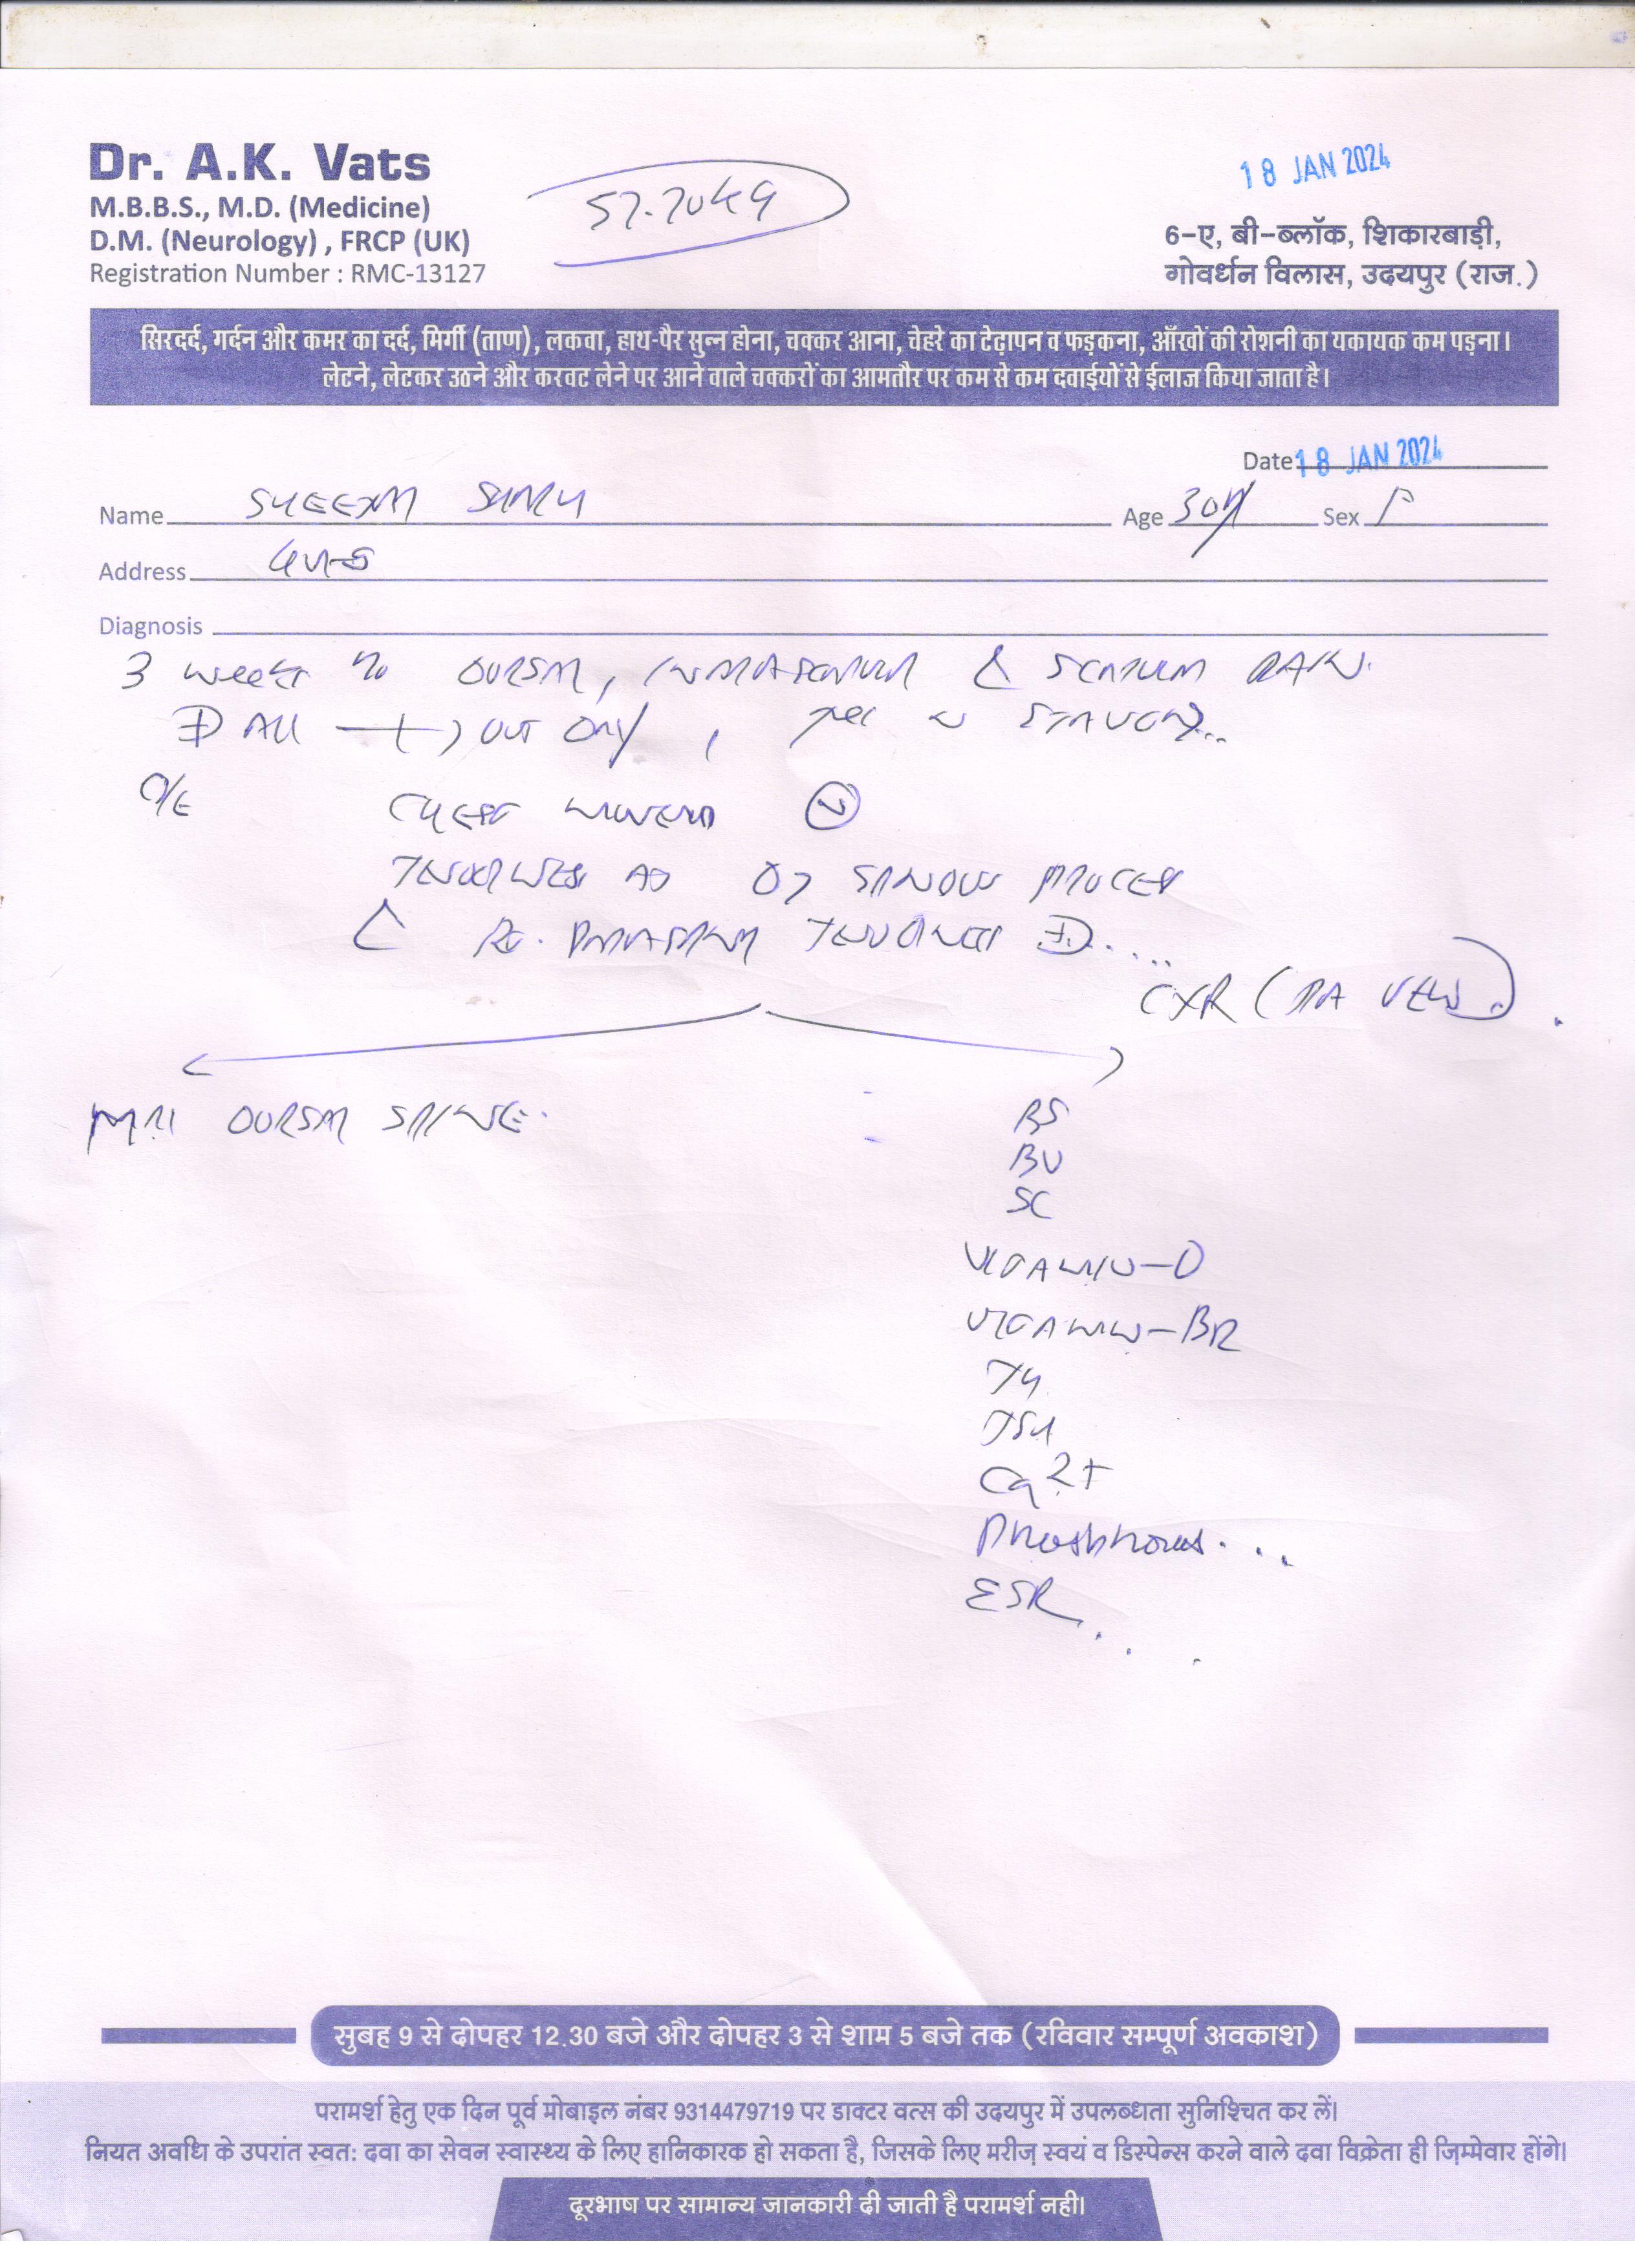 Dr. A.K. Vats
M.B.B.S., M.D. (Medicine)
D.M. (Neurology) , FRCP (UK)
Registration Number : RMC-13127
57.70kg
18 JAN 2024
6-ए, बी-ब्लॉक, शिकारबाड़ी,
गोवर्धन विलास, उदयपुर (राज.)
सिरदर्द, गर्दन और कमर का दर्द, मिर्गी (ताण), लकवा, हाथ-पैर सुन्न होना, चक्कर आना, चेहरे का टेढ़ापन व फड़कना, आँखों की रोशनी का यकायक कम पड़ना।
लेटने, लेटकर उठने और करवट लेने पर आने वाले चक्करों का आमतौर पर कम से कम दवाईयों से ईलाज किया जाता है।
Date 18 JAN 2024
Name
Age 30 Sex F
Address
Diagnosis
3 weeks DORSAL, PAIN
ALL OUT DAY,
O/E CHEST
TENDERNESS D7 SPINOUS PROCESS
RT. TENDERNESS
CXR (PA VIEW)
MRI DORSAL SPINE
BS
BU
SC
VITAMIN-D
VITAMIN-B12
T4
TSH
Ca2+
Phosphorus...
ESR...
सुबह 9 से दोपहर 12.30 बजे और दोपहर 3 से शाम 5 बजे तक (रविवार सम्पूर्ण अवकाश)
परामर्श हेतु एक दिन पूर्व मोबाइल नंबर 9314479719 पर डाक्टर वत्स की उदयपुर में उपलब्धता सुनिश्चित कर लें।
नियत अवधि के उपरांत स्वत: दवा का सेवन स्वास्थ्य के लिए हानिकारक हो सकता है, जिसके लिए मरीज़ स्वयं व डिस्पेन्स करने वाले दवा विक्रेता ही ज़िम्मेवार होंगे।
दूरभाष पर सामान्य जानकारी दी जाती है परामर्श नही।